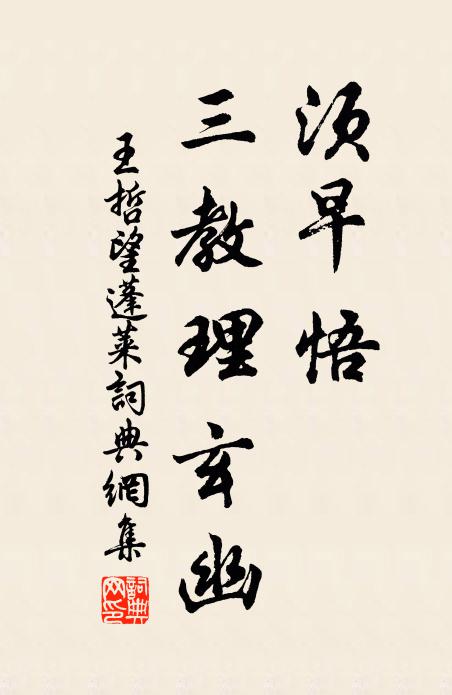 須早悟
三教理玄幽
王哲望蓬萊詞典網集
詞典網印